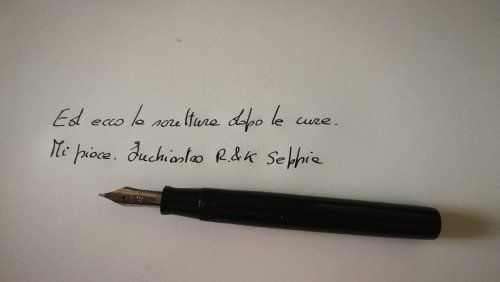 Ed ecco la scrittura dopo le cure.
Mi piace. Inchiostro R&K Seppia